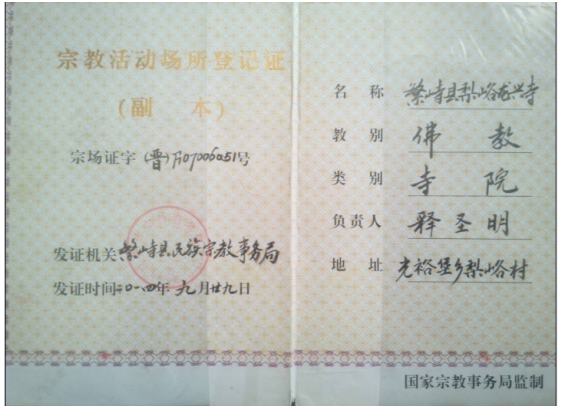 宗教活动场所登记证
（副 本）
宗场证字（晋）F070060051号
发证机关 繁峙县民族宗教事务局
发证时间 二0一四年九月廿九日
名 称 繁峙县梨峪龙兴寺
教 别 佛 教
类 别 寺 院
负责人 释圣明
地 址 光裕堡乡梨峪村
国家宗教事务局监制